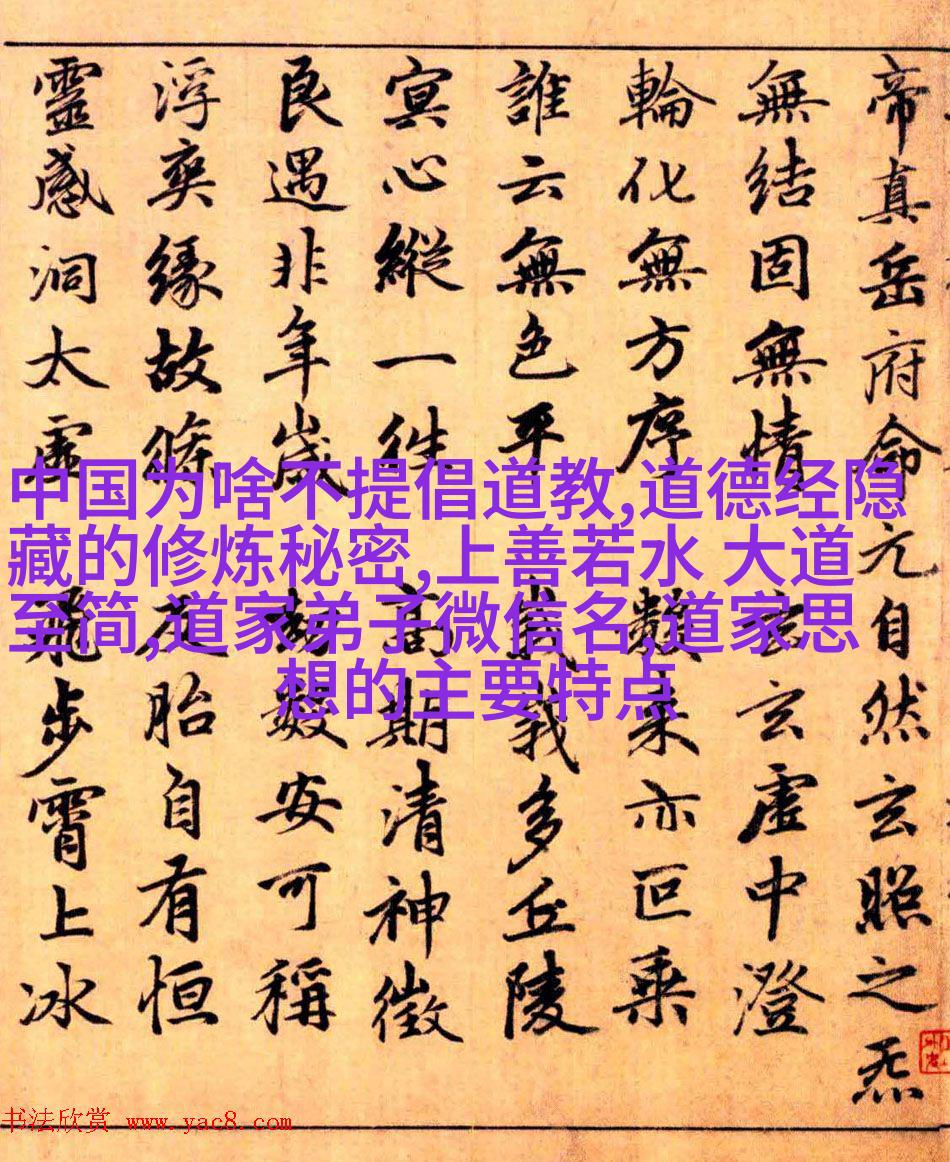 帝真岳府命元自然玄照之炁
無結固無情 玄玄虛中澄
輪化無方序 數來亦叵乘
誰云無色平 峩峩多丘陵
冥心縱一徃 高期清神徵
良遇非年歲 劫數安可稱
浮爽緣故條 反胎自有恒
靈感洞太虛 飛步霄上冰
中国为啥不提倡道教,道德经隐
藏的修炼秘密,上善若水 大道
至简,道家弟子微信名,道家思
想的主要特点
书法欣赏 www.yac8.com